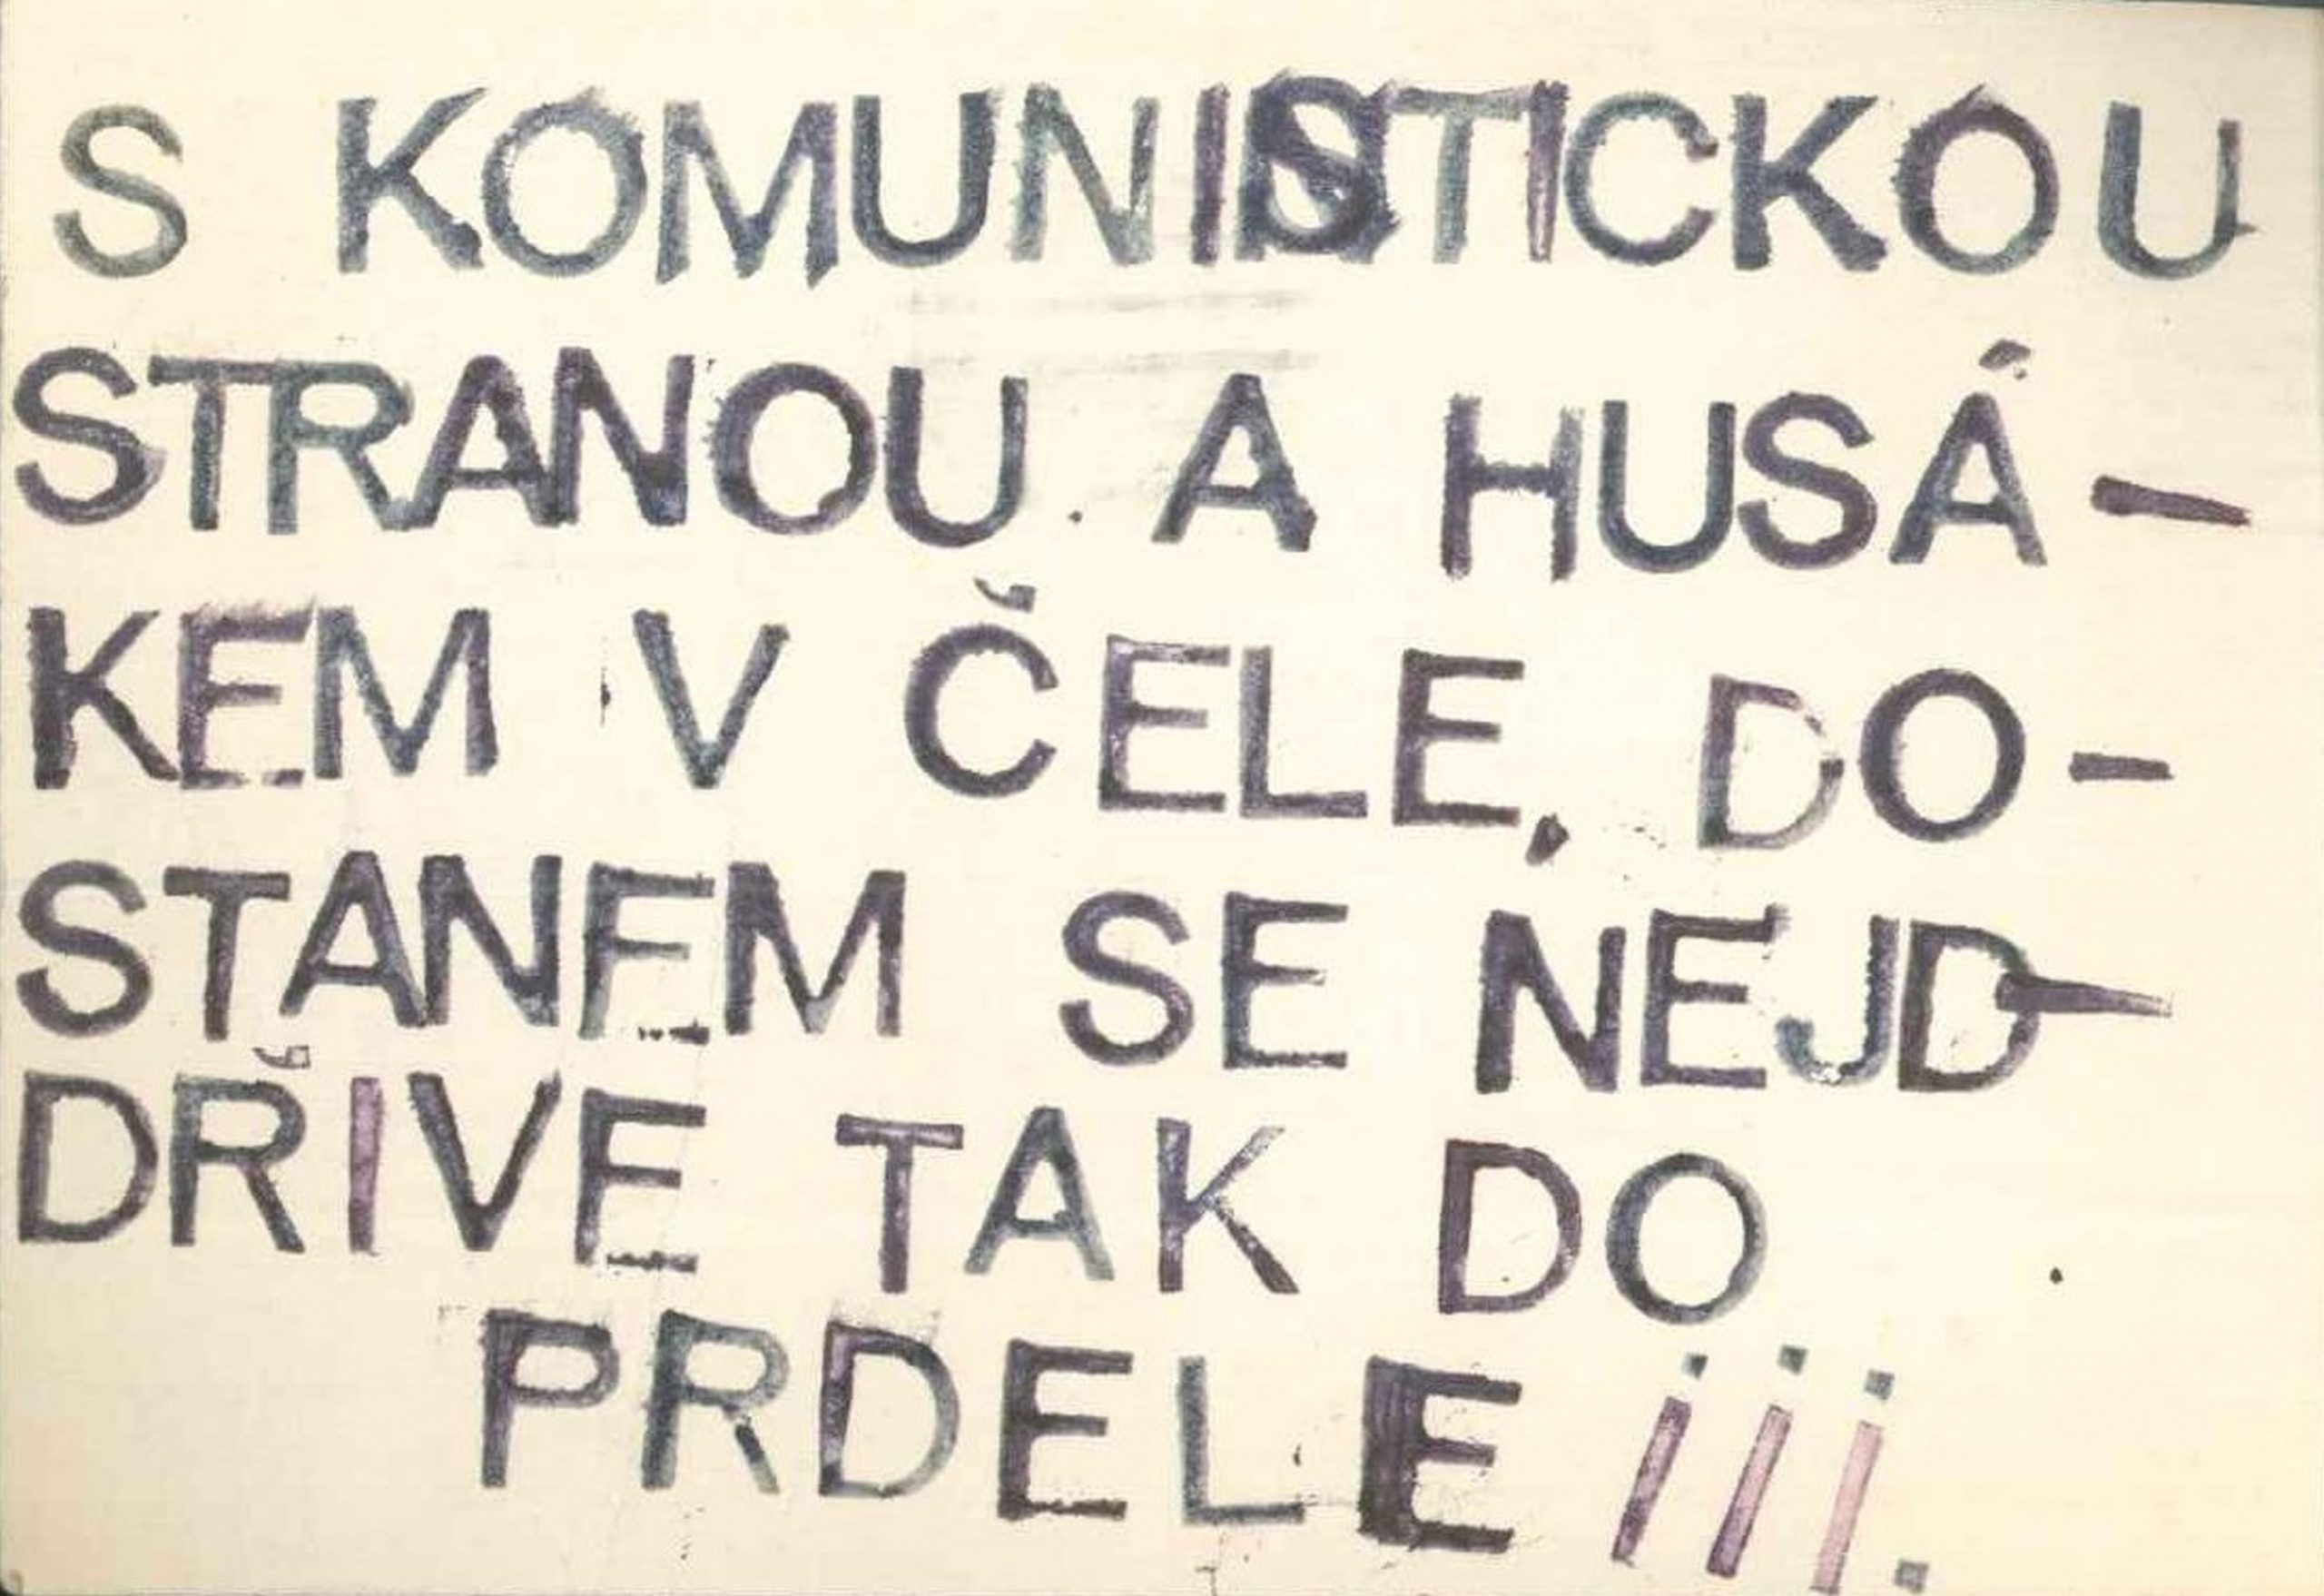 S KOMUNISTICKOU
STRANOU A HUSÁ-
KEM V ČELE, DO-
STANEM SE NEJD-
DŘIVE TAK DO
PRDELE iii.